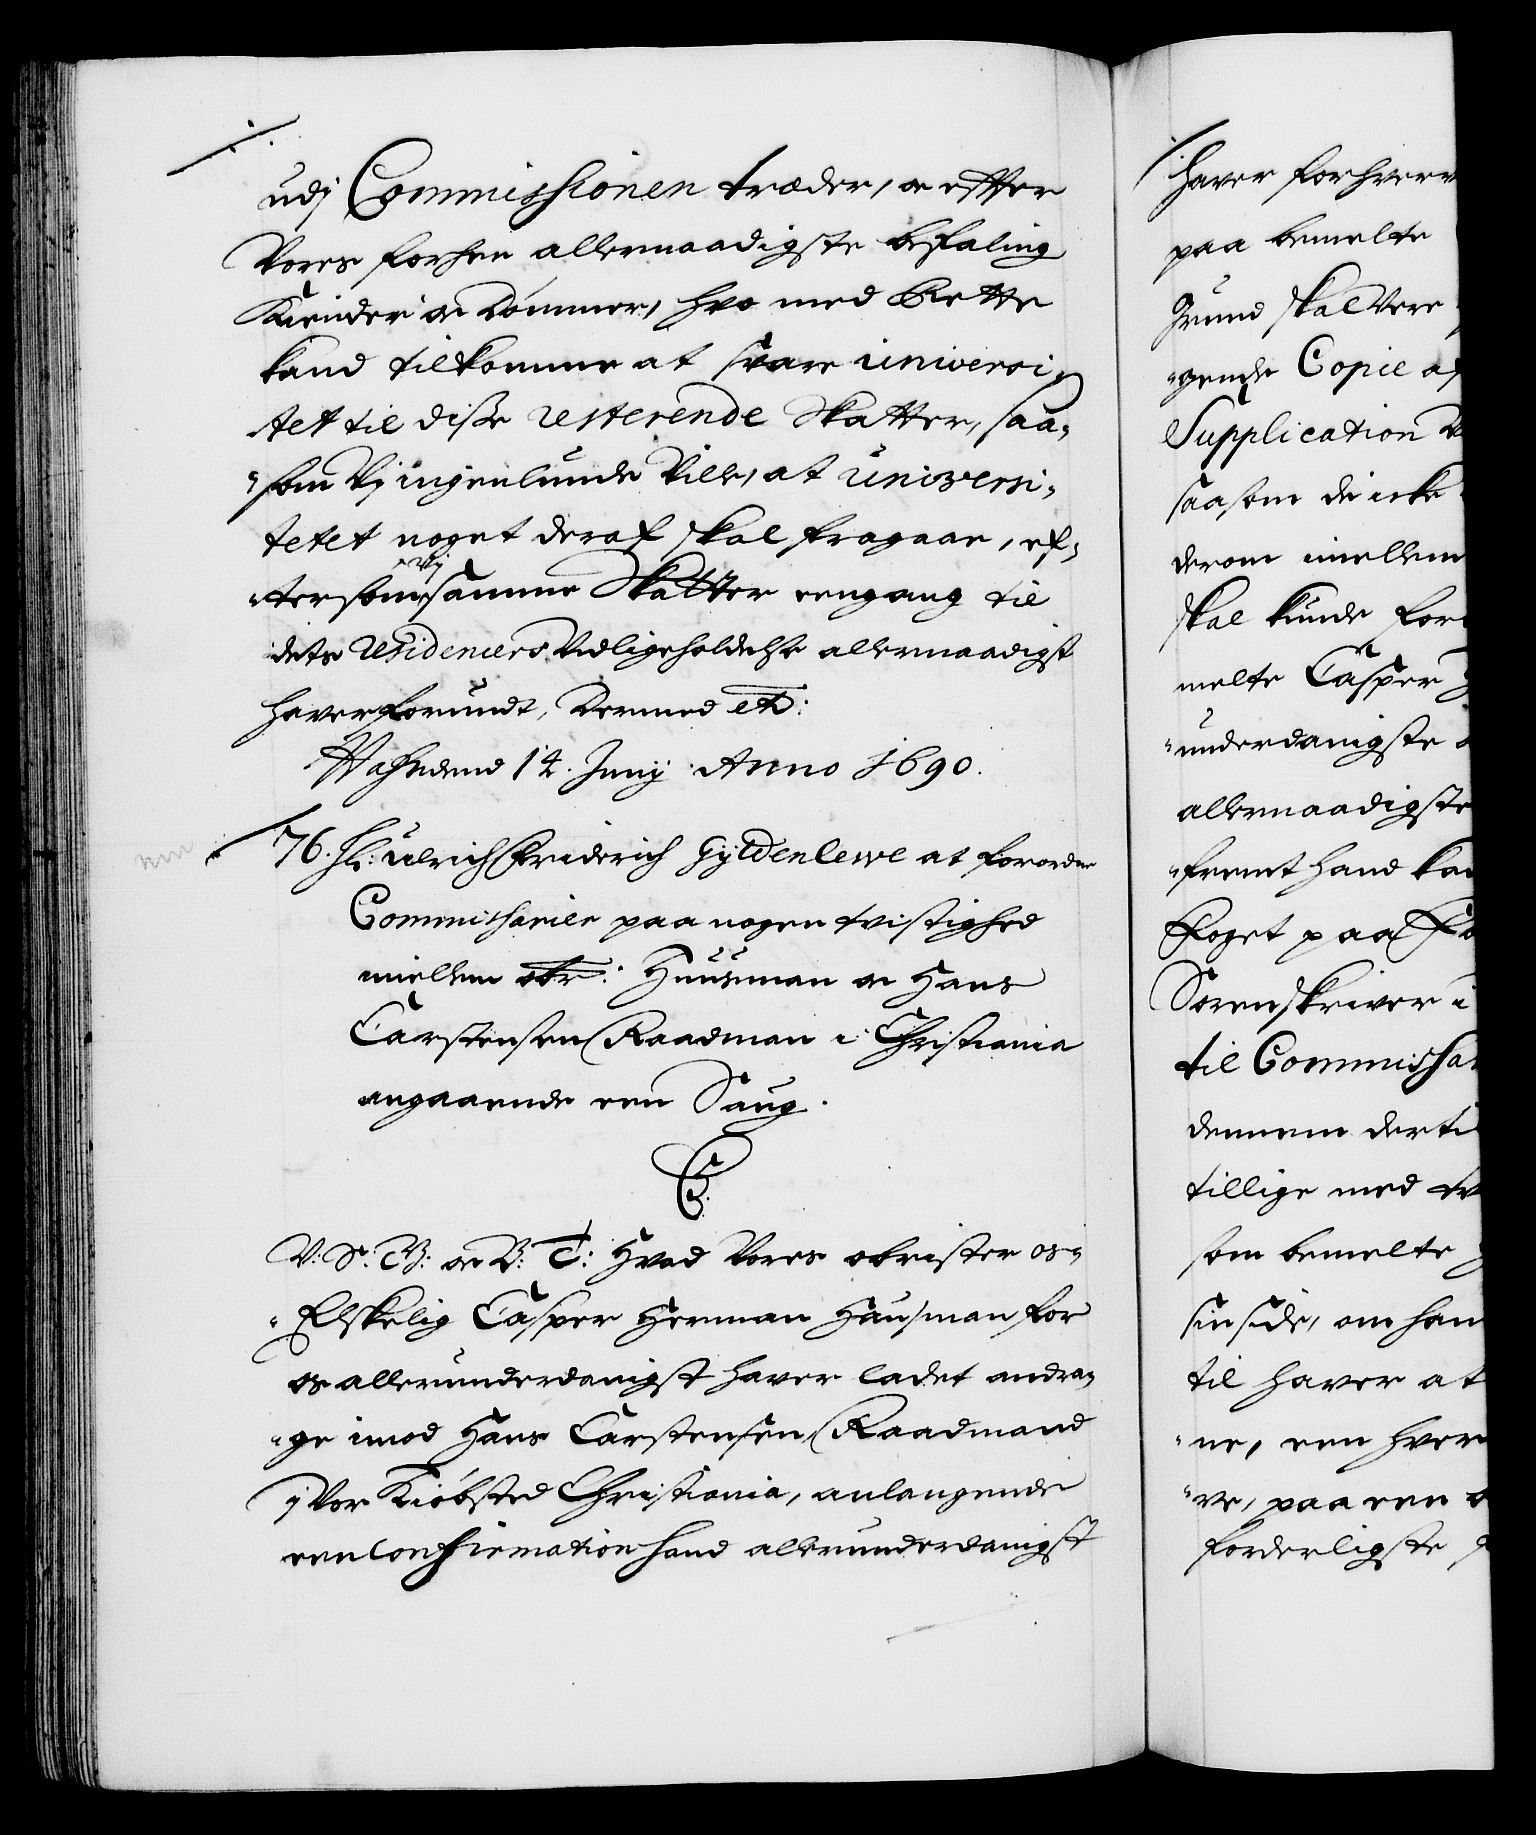 udj Commissionen træder, oc effter
Vores forhen allernaadigste befaling
Kiender oc Dømmer, hvo med Rette
kand tilkomme at svare universi-
tet til disse resterende Skatter, saa-
som Vj ingenlunde Ville, at universi-
tetet noget deraf skal fragaae, ef-
tersom Vj samme Skatter eengang til
dets Residencers Vedligeholdelse allernaadigst
haver forundt, Dermed etc:
Haffn dend 14. Junij Anno 1690.
76. H: Ulrich Friderich Gyldenlewe at forordne
Commissarier paa nogen tvistighed
mellem obr: Huusman oc Hans
Carstensen Raadman i Christiania
angaaende een Saug.
C5.
V: S: B: oc B: T: Hvad Vores obrister os
Elskelig Casper Herman Hausman for
os allerunderdanigst haver ladet andra-
ge imod Hans Carstensen, Raadmand
j Vor Kiøbsted Christiania, anlangende
een Confirmation hand allerunderdanigst
haver forhverv
paa bemelte
Grund skal Vere
gende Copie af
Supplication
saasom de icke
derom imellem
skal kunde for
melte Casper
underdanigste
allernaadigste
fremt hand kan
Foget paa
Sorenskriver i
til Commissar
dennem derti
tillige med
som bemelte
sin side, om han
til haver at
ne, een hver
ve, paa een
forderligste